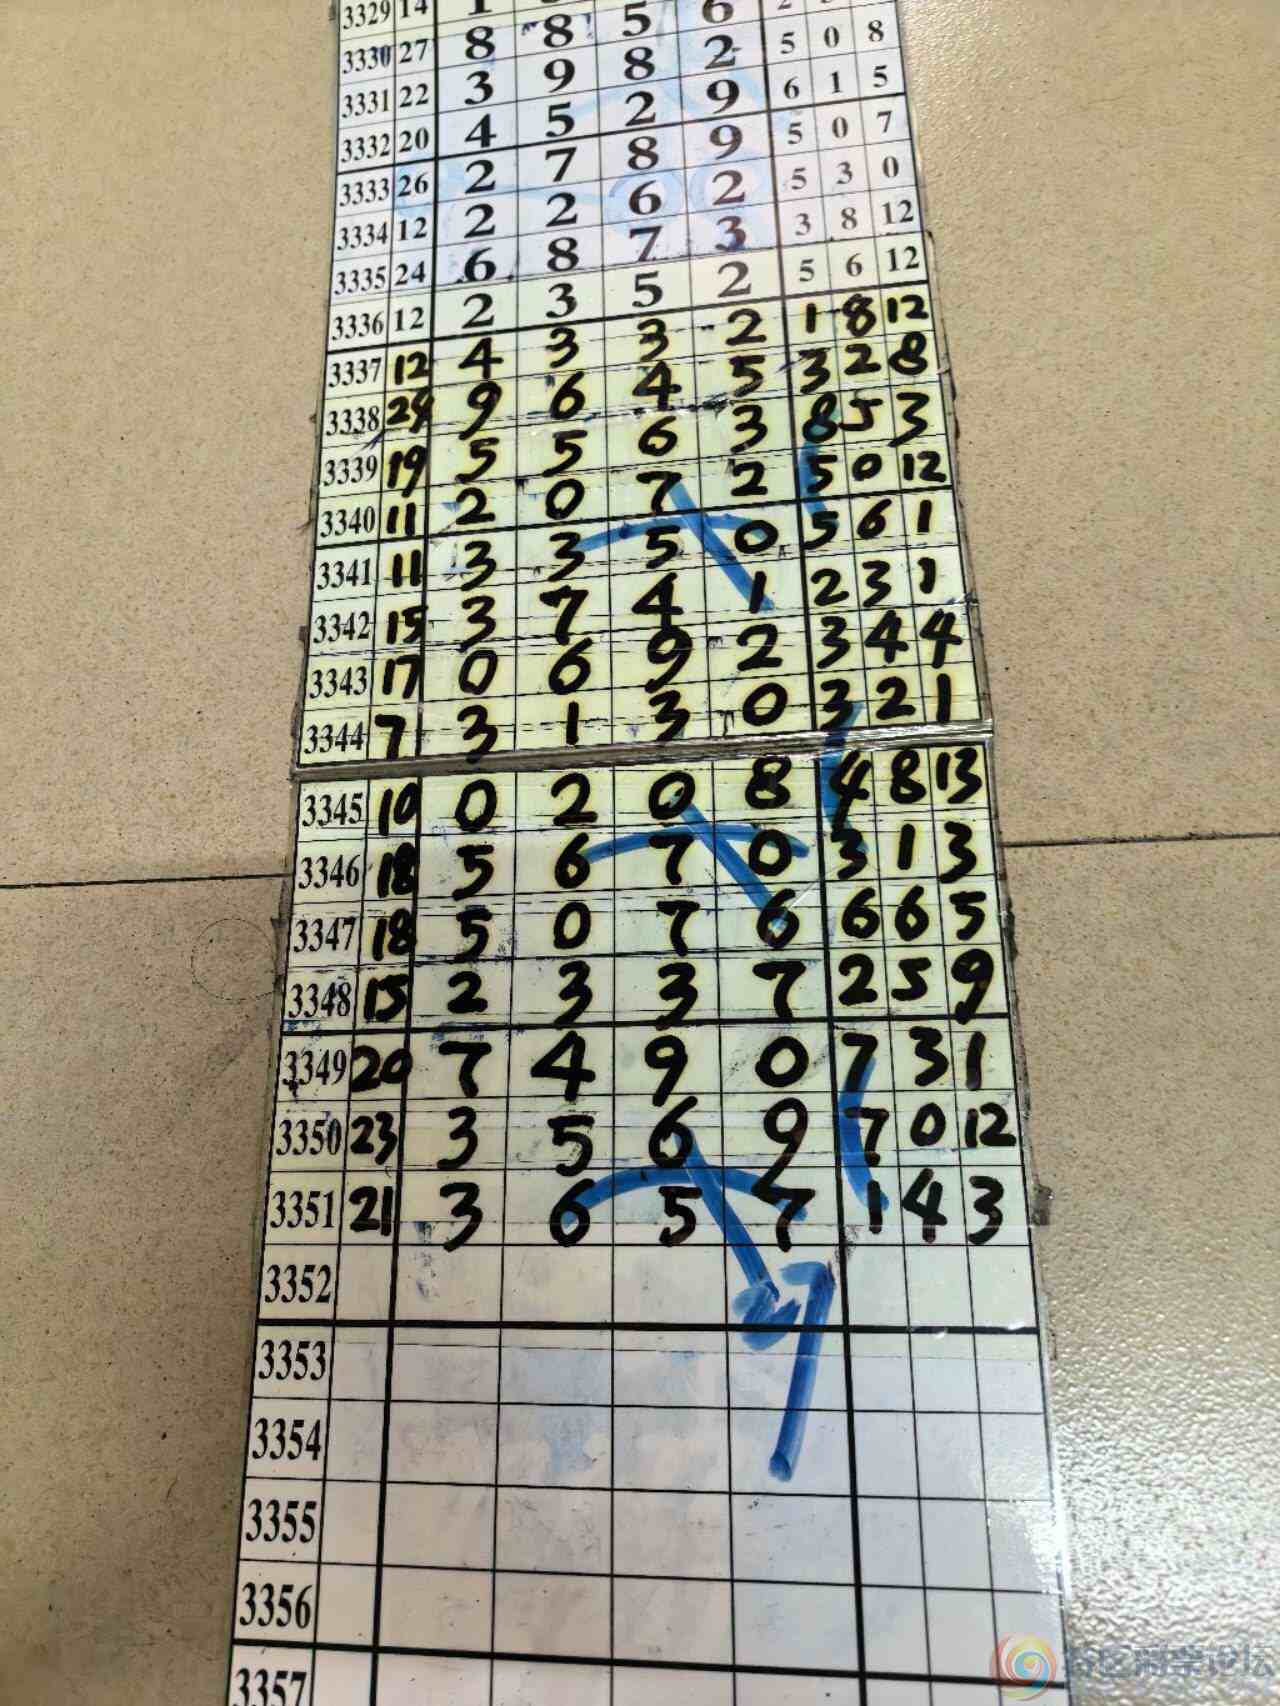 3329 14 1 5 6
3330 27 8 8 5 6 5 0 8
3331 22 3 9 8 2 6 1 5
3332 20 4 5 2 9 5 0 7
3333 26 2 7 8 9 5 3 0
3334 12 2 2 6 2 3 8 12
3335 24 6 8 7 3 5 6 12
3336 12 2 3 5 2 1 8 12
3337 12 4 3 3 2 3 2 8
3338 24 9 6 4 5 8 5 3
3339 19 5 5 6 3 5 0 12
3340 11 2 0 7 2 5 6 1
3341 11 3 3 5 0 2 3 1
3342 15 3 7 4 1 3 4 4
3343 17 0 6 9 2 3 2 1
3344 7 3 1 3 0
3345 10 0 2 0 8 4 8 13
3346 18 5 6 7 0 3 1 3
3347 18 5 0 7 6 6 6 5
3348 15 2 3 3 7 2 5 9
3349 20 7 4 9 0 7 3 1
3350 23 3 5 6 9 7 0 12
3351 21 3 6 5 7 1 4 3
3352
3353
3354
3355
3356
3357